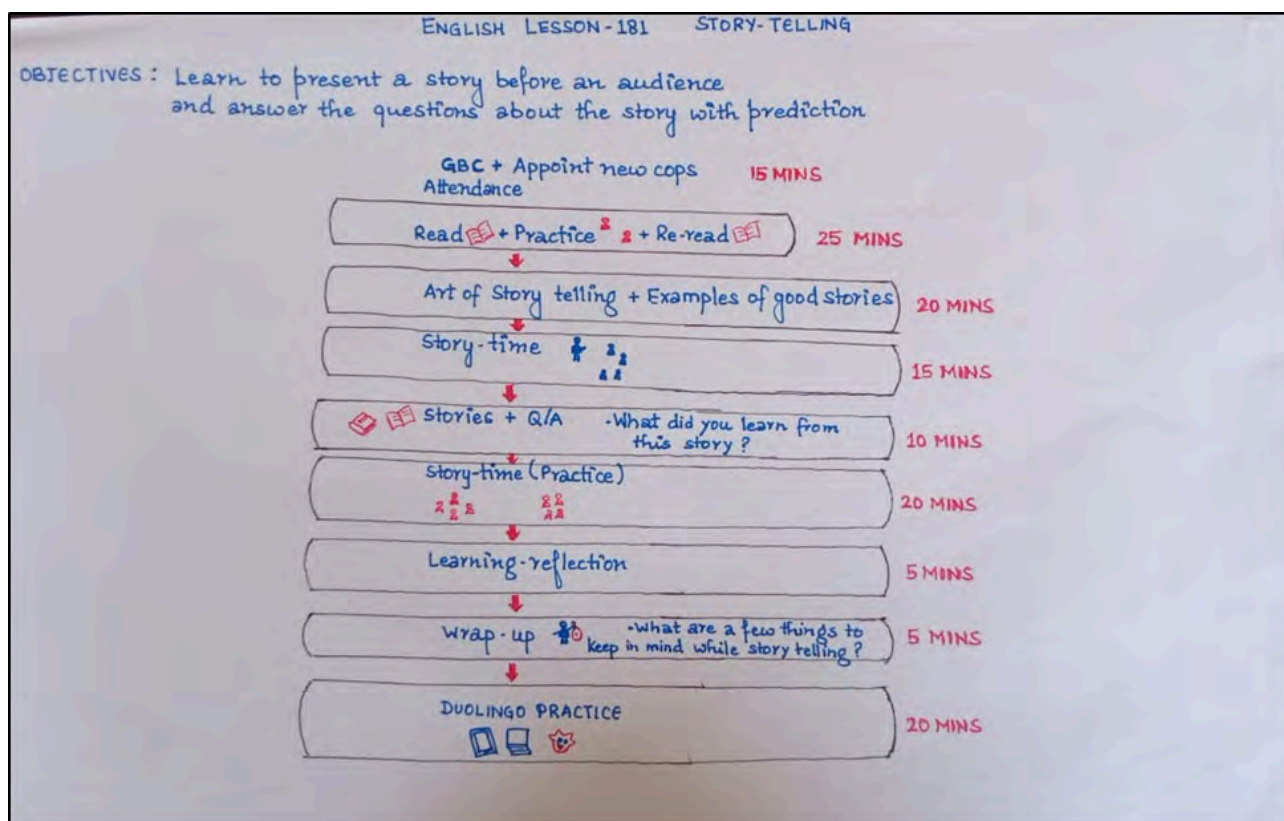 ENGLISH LESSON-181 STORY-TELLING
OBJECTIVES: Learn to present a story before an audience
and answer the questions about the story with prediction
GBC + Appoint new cops 15 MINS
Attendance
Read + Practice + Re-read 25 MINS
Art of Story telling + Examples of good stories 20 MINS
Story-time 15 MINS
Stories + Q/A -What did you learn from
this story? 10 MINS
Story-time (Practice)
20 MINS
Learning-reflection 5 MINS
Wrap-up -What are a few things to
keep in mind while story telling? 5 MINS
DUOLINGO PRACTICE
20 MINS